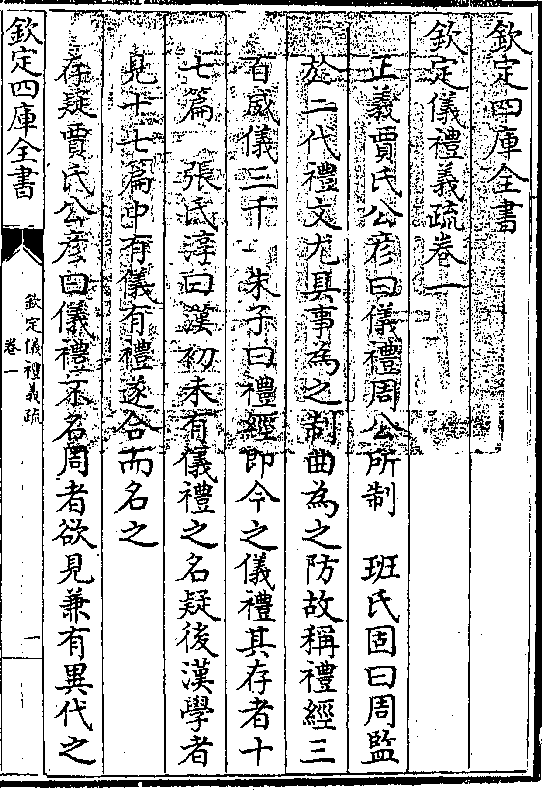 欽定四庫全書
欽定儀禮義疏卷一
正義賈氏公彦曰儀禮周公所制　班氏固曰周監
於二代禮文尤具事為之制曲為之防故稱禮經三
百威儀三千　朱子曰禮經即今之儀禮其存者十
七篇　張氏淳曰漢初未有儀禮之名疑後漢學者
見十七篇中有儀有禮遂合而名之
存疑賈氏公彦曰儀禮不名周者欲見兼有異代之
欽定四庫全書
欽定儀禮義疏
卷一
一